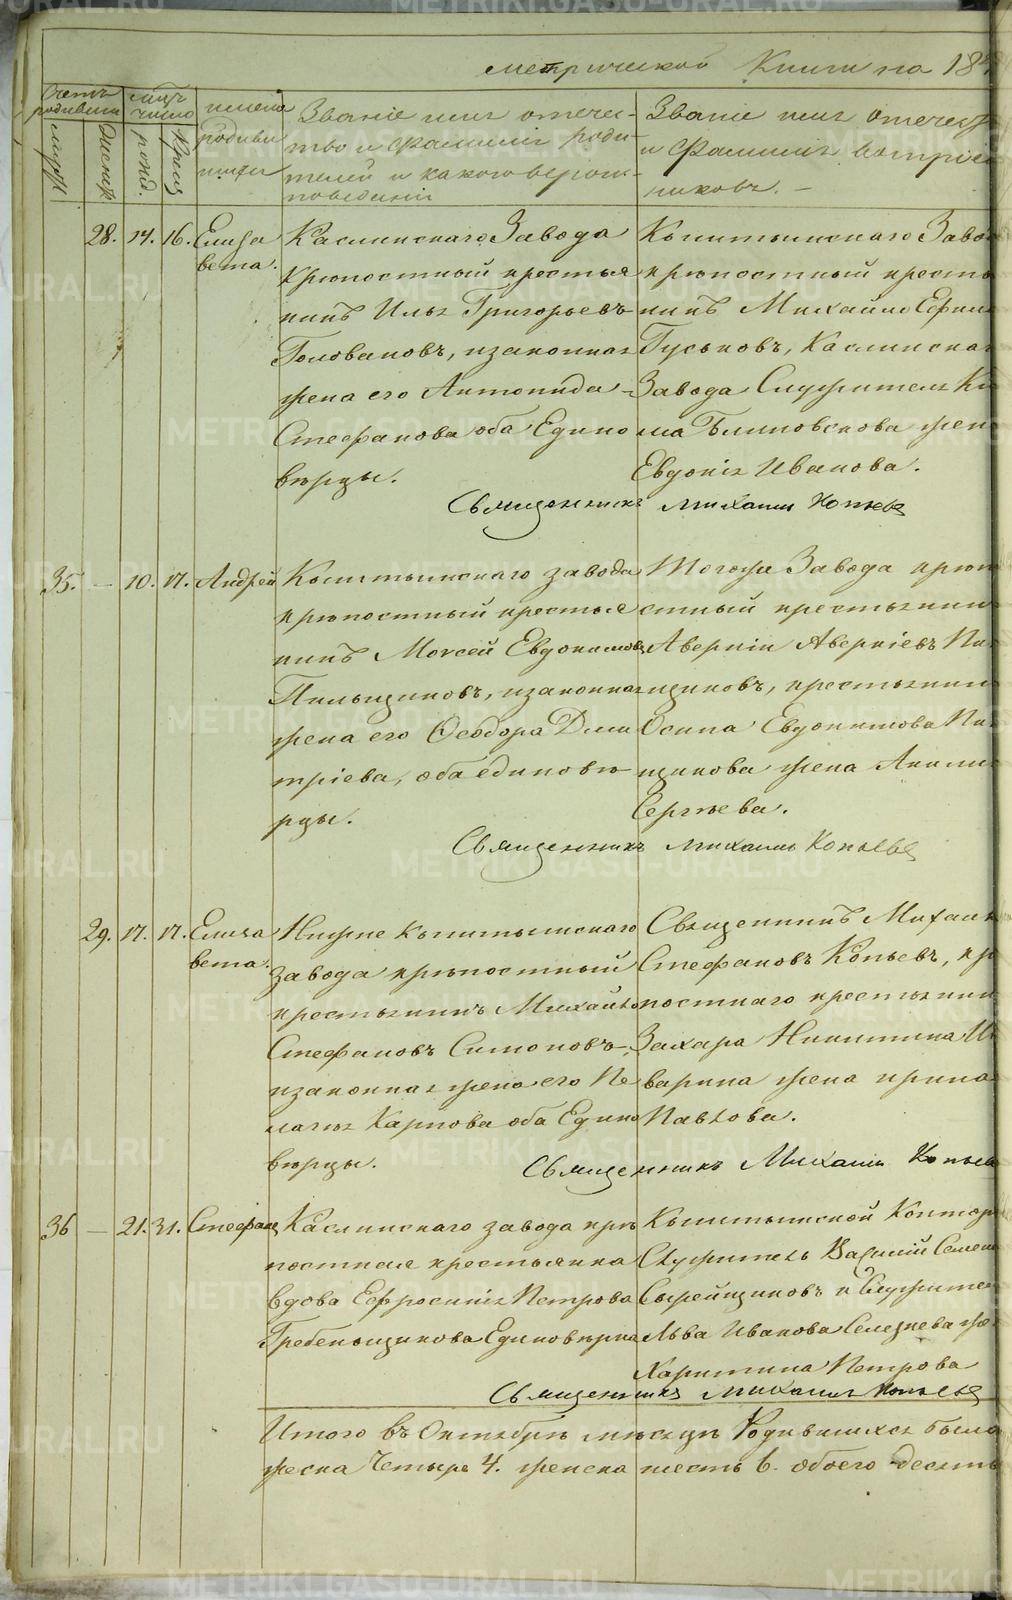 метрической Книги на 18
Счетъ родившихся
мужск.
женск.
мцъ число
рожд.
Крещ.
имена родившихся
Званіе имя отече-
ство и фамилія роди-
телей и какого вероис-
поведанія
Званіе имя отечест
и Фамилия воспріем
никовъ. —
28. 14. 16. Елиза
вета.
Каслинскаго Завода
крѣпостный крестья
нинъ Илья Григорьевъ
Головановъ, и законная
жена его Антонида
Стефанова оба Едино
вѣрцы.
Кыштымскаго Завод
крѣпостный кресть
нинъ Михайло Ефим
Гуськовъ, Каслинска
Завода Служителя Ки
ма Блиновскова жен
Евдокія Иванова.
Священникъ Михаил Копьевъ
35. — 10. 17. Андрей
Кыштымскаго завода
крѣпостный крестья
нинъ Моѵсей Евдокимовъ
Пильщиковъ, и законная
жена его Ѳеодора Дми
тріева, оба единовѣ
рцы.
Тогоже Завода крѣп
стный крестьянин
Аверкій Аверкіевъ Пи
щиковъ, крестьянин
Осипа Евдокимова Пи
щикова жена Акили
Сергѣева.
Священникъ Михаилъ Копьевъ
29. 17. 17. Елиза
вета.
Нижне Кыштымскаго
завода крѣпостный
крестьянинъ Михайло
Стефановъ Симоновъ,
и законная жена его Пе
лагія Карпова оба Едино
вѣрцы.
Священникъ Михаил
Стефановъ Копьевъ, кр
постнаго крестьянин
Захара Никитина И
варина жена Ирина
Павлова.
Священникъ Михаилъ Копьев
36 — 21. 31. Стефан
Каслинскаго завода крѣ
постная крестьянка
вдова Ефросинія Петрова
Гребеньщикова Единовѣрка
Кыштымской Контор
Служитель Василій Семен
Сырейщиковъ и Служите
Льва Иванова Селезнева же
Харитина Петрова
Священникъ Михаилъ Копьевъ
Итого въ Октябрѣ мѣсяцѣ Родившихся было
жеска Четыре 4. женска шесть 6. обоего десять